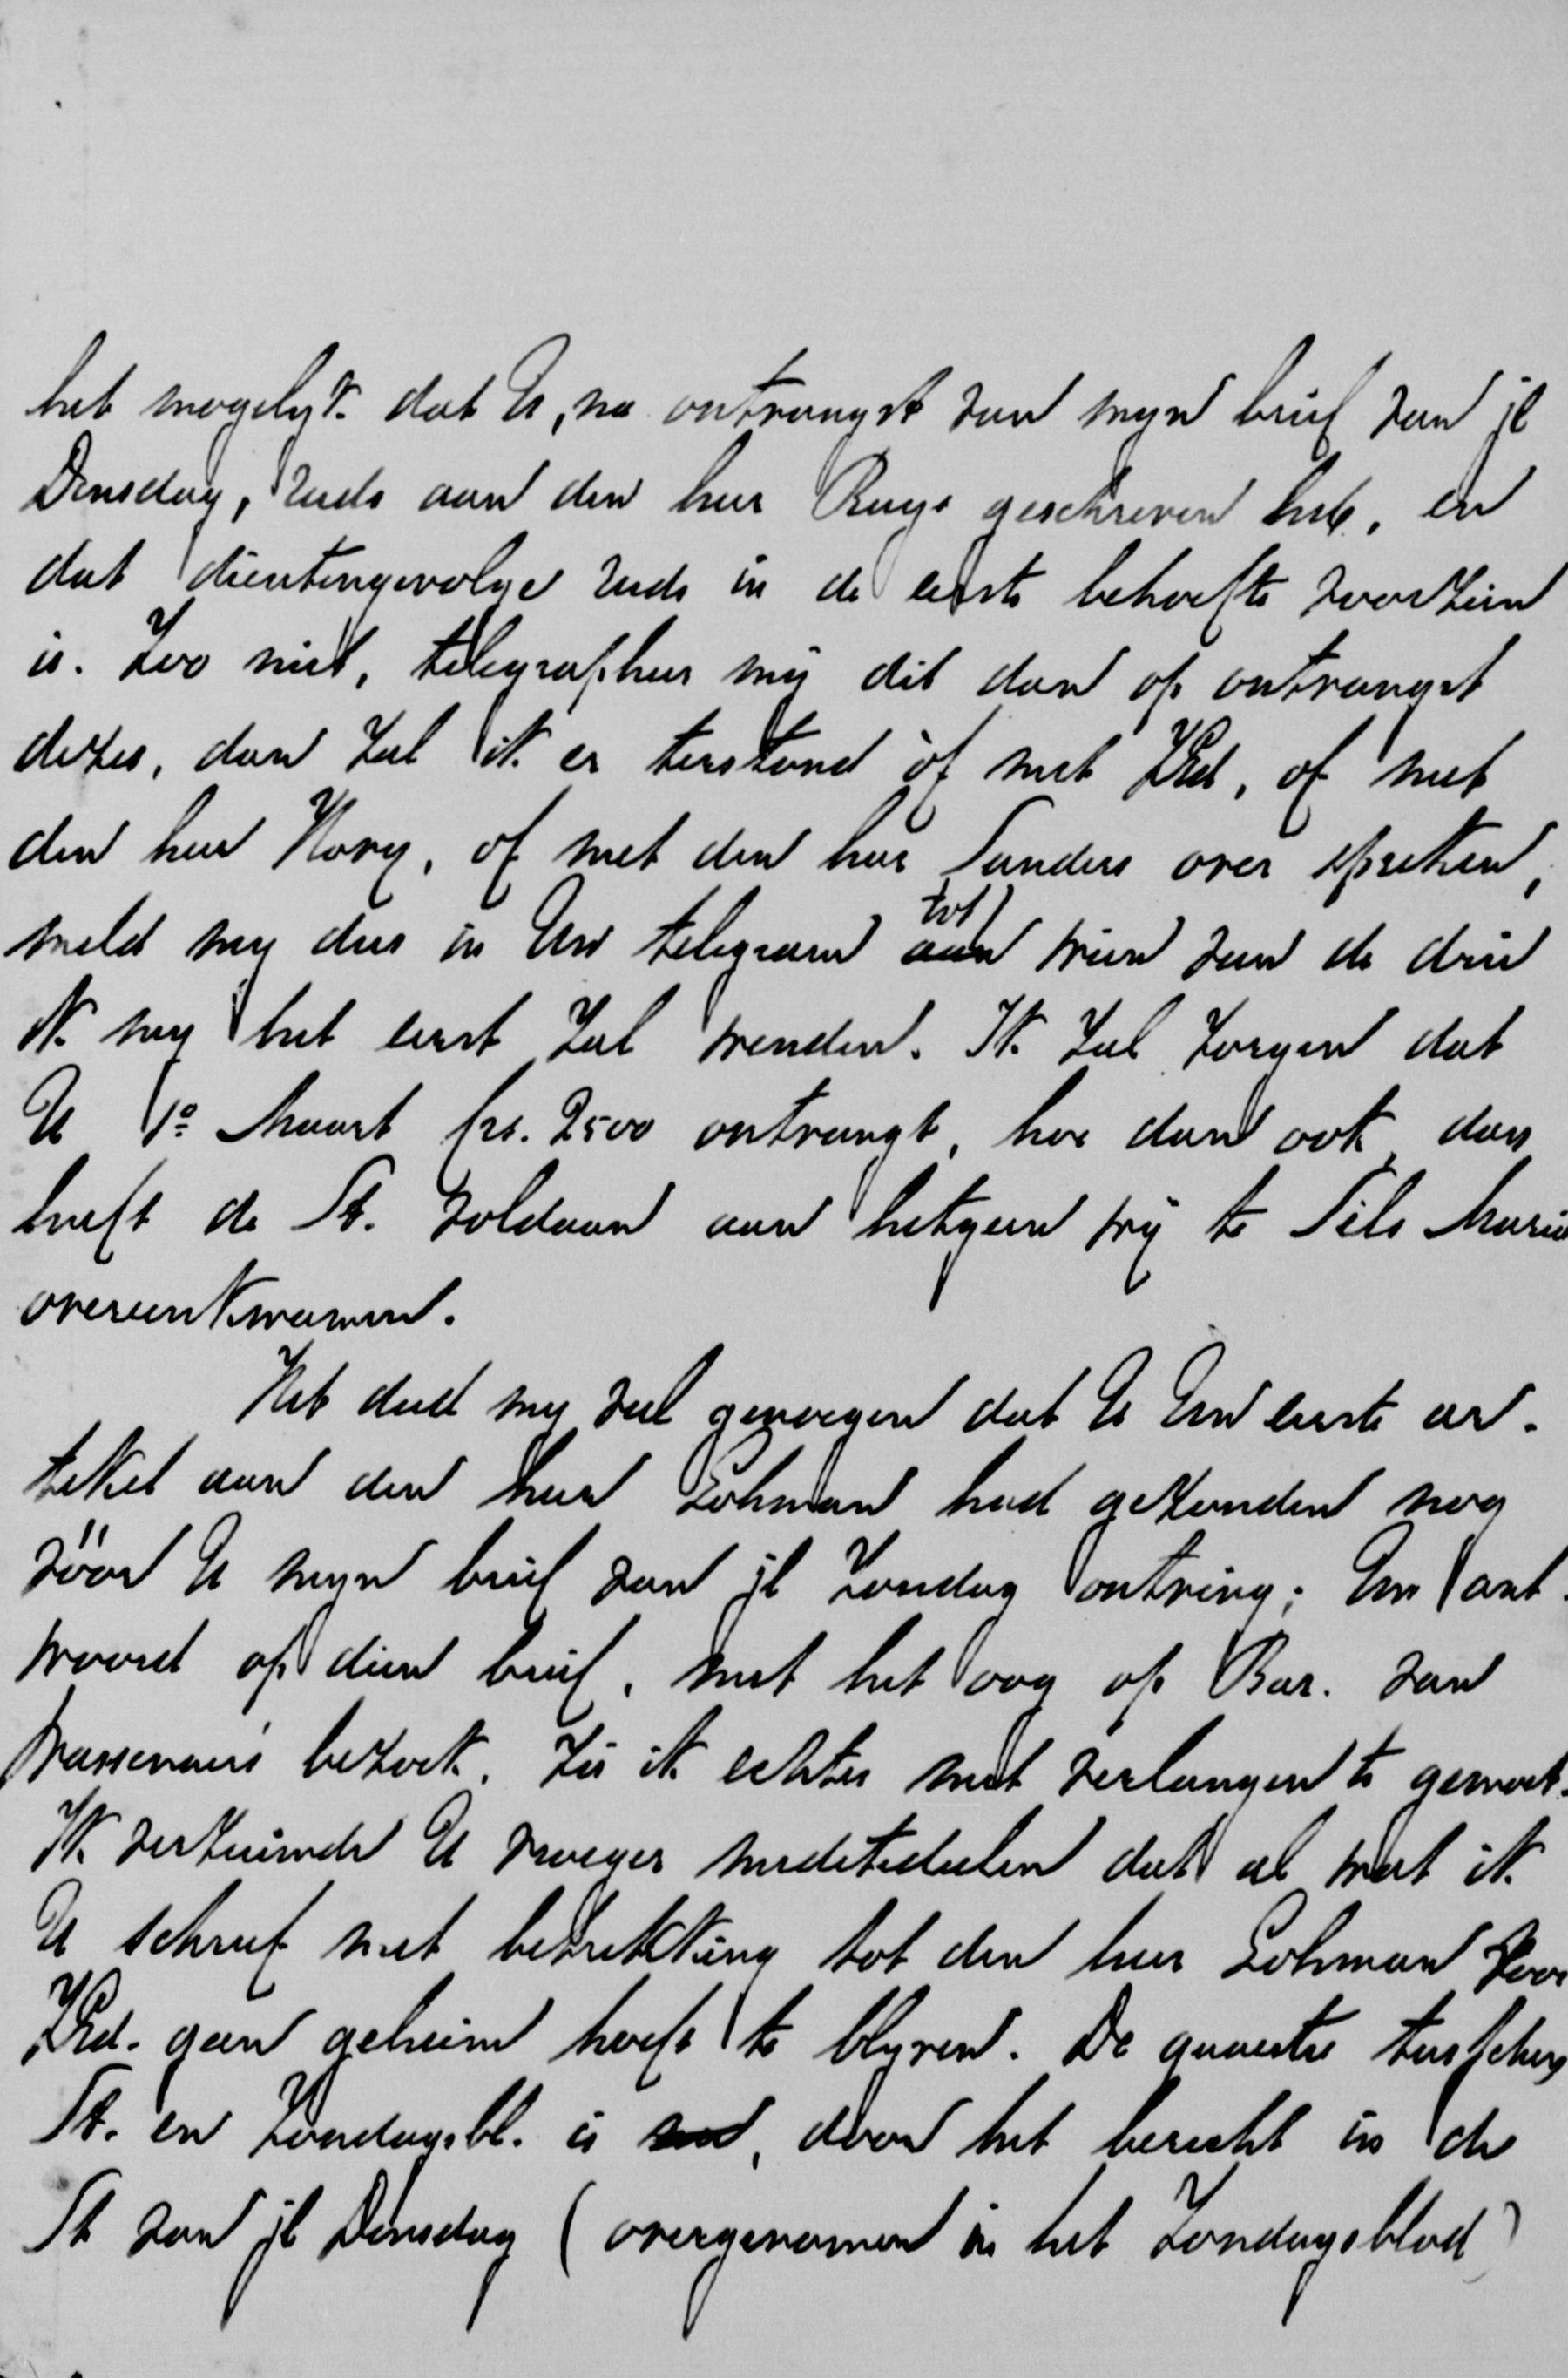 het mogelyk dat U, na ontvangst van myn brief van jl
Dinsdag, reeds aan den heer Ruys geschreven heb, en
dat dientengevolge reeds in de eerste behoefte voorzien
is. Zoo niet, telegrapheer mij dit dan op ontvangst
dezes, dan zal ik er terstond òf met ZEd, of met
den heer Hovy, of met den heer Sanders over spreken,
meld my dus in Uw telegram aan tot wien van de drie
ik my het eerst zal wenden. Ik zal zorgen dat
U 1o Maart frs. 2500 ontvangt, hoe dan ook, dan
heeft de St. voldaan aan hetgeen wij te Sils Maria
overeenkwamen.
Het deed my veel genoegen dat U Uw eerste ar-
tikel aan den heer Lohman had gezonden nog
vóór U myn brief van jl Zondag ontving; Uw ant-
woord op dien brief, met het oog op Bar. van
Wassenaers bezoek, zie ik echter met verlangen te gemoet.
Ik verzuimde U vroeger medetedeelen dat al wat ik
U schreef met betrekking tot den heer Lohman voor
ZEd. geen geheim hoeft te blyven. De quaestie tusschen
St. en Zondagsbl. is, door het bericht in de
St van jl Dinsdag (overgenomen in het Zondagsblad)